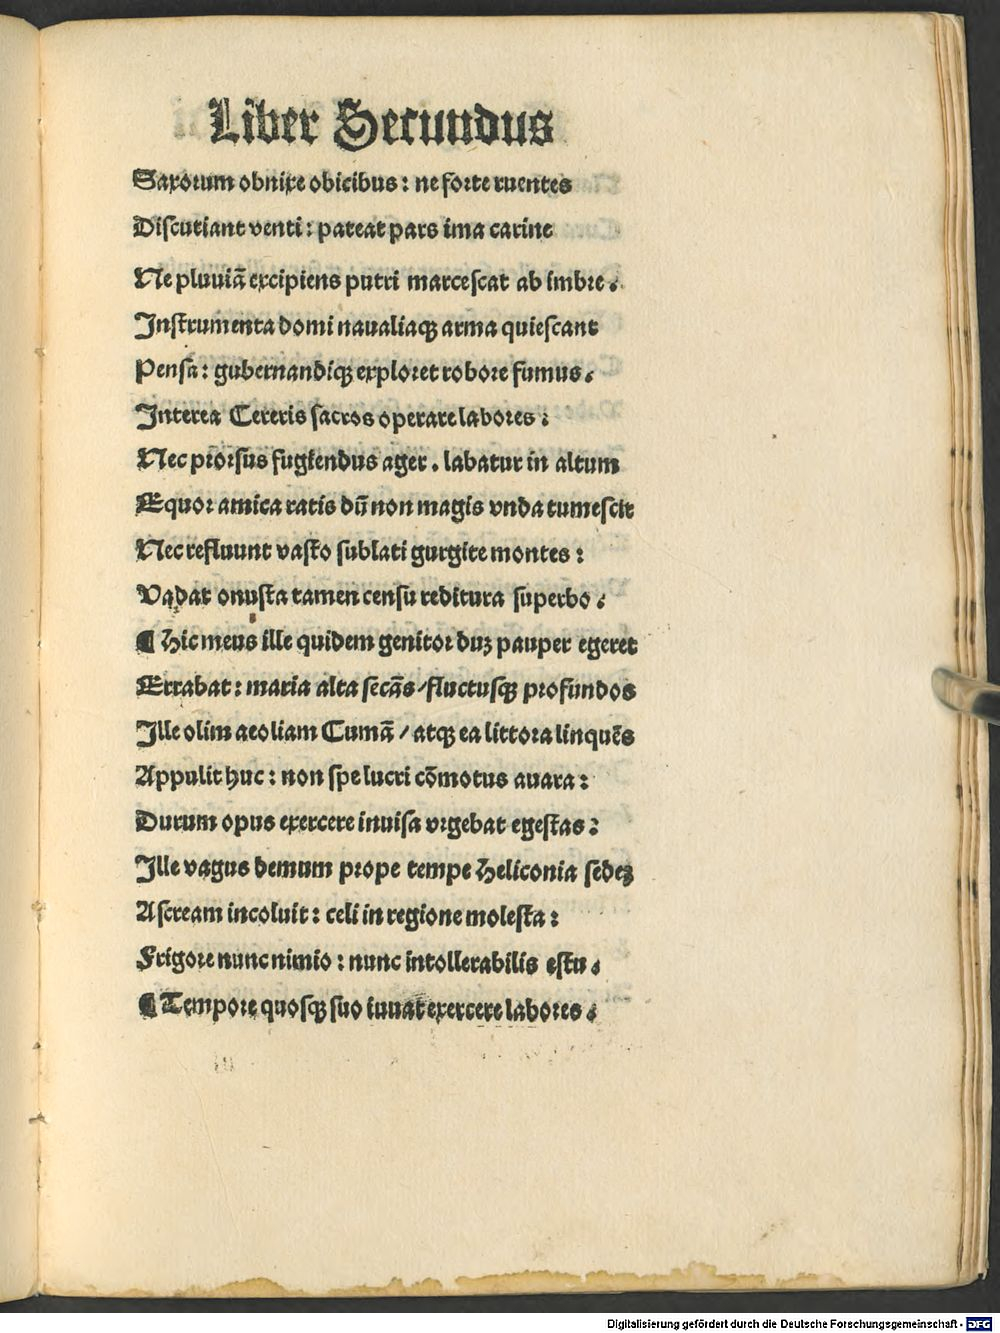 Liber Secundus
Saxorum obnixe obicibus: ne forte ruentes
Discutiant venti: pateat pars ima carine
Ne pluuiã excipiens putri marcescat ab imbre.
Instrumenta domi naualiaqꝫ arma quiescant
Pensa: gubernandiqꝫ exploret robore fumus.
Interea Cereris sacros operare labores:
Nec prorsus fugiendus ager. labatur in altum
Equor amica ratis dũ non magis vnda tumescit
Nec refluunt vasto sublati gurgite montes:
Vadat onusta tamen censu reditura superbo.
¶ Hic meus ille quidem genitor duꝫ pauper egeret
Errabat: maria alta secãs/fluctusqꝫ profundos
Ille olim aeoliam Cumã / atqꝫ ea littora linquẽs
Appulit huc: non spe lucri cõmotus auara:
Durum opus exercere inuisa vrgebat egestas:
Ille vagus demum prope tempe Heliconia sedeꝫ
Ascream incoluit: celi in regione molesta:
Frigore nunc nimio: nunc intollerabilis estu.
¶ Tempore quosqꝫ suo iuuat exercere labores.
Digitalisierung gefördert durch die Deutsche Forschungsgemeinschaft - DFG